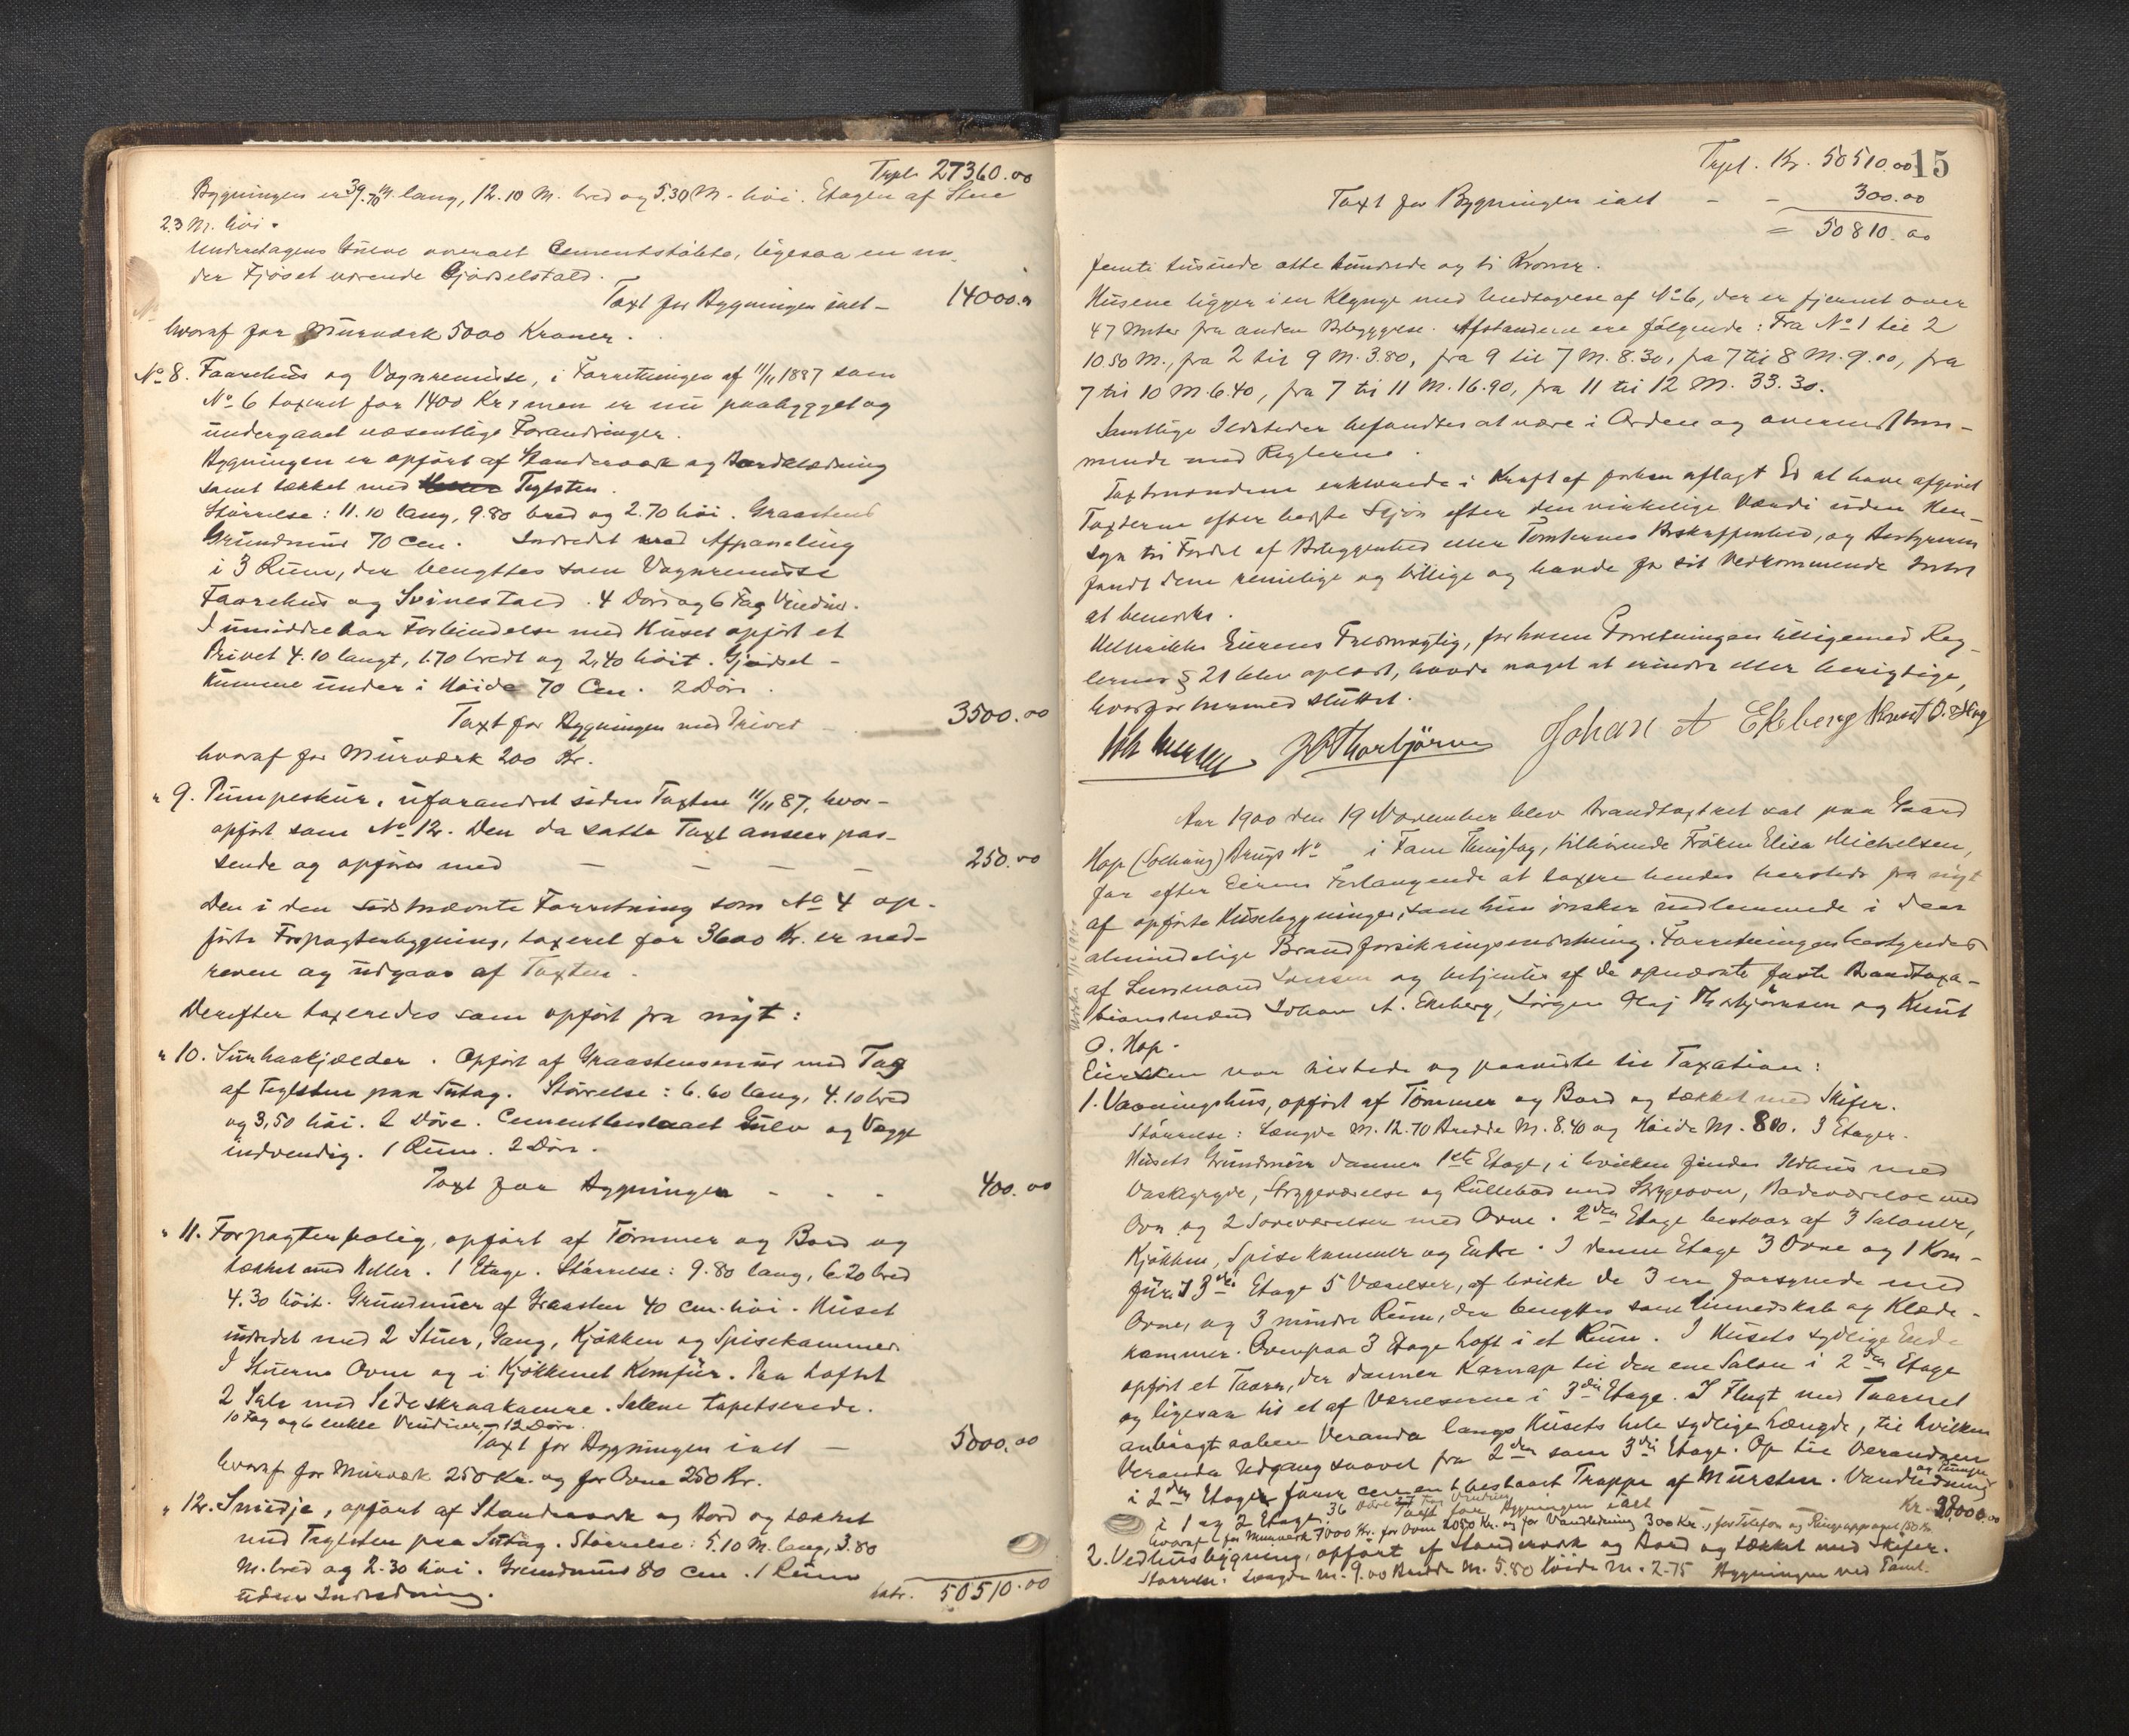 Trspt. 27360.00
Bygningen er 39.70 M. lang, 12.10 M. bred og 5.30 M. høi. Etagen af Sten
2.3 M. høi.
Underetagens Gulve overalt Cementstøbte, ligesaa en un-
der Fjøset værende Gjødselstald.
Taxt for Bygningen ialt – 14000.00
hvoraf for Murværk 5000 Kroner.
No 8. Faarehus og Vognremisse, i Forretningen af 11/11 1887 som
No 6 taxeret for 1400 Kr, men er nu paabygget og
undergaaet væsentlige Forandringer.
Bygningen er opført af Standerværk og Bordklædning
samt tækket med Teglsten.
Størrelse: 11.10 lang, 9.80 bred og 2.70 høi. Graastens
Grundmur 70 Cen. Indredet med Afpaneling
i 3 Rum, der benyttes som Vognremisse
Faarehus og Svinestald. 4 Døre og 6 Fag Vinduer.
I umiddelbar Forbindelse med Huset opført et
Privet 4.10 langt, 1.70 bredt og 2,40 høit. Gjødsel-
kumme under i Høide 70 Cen. 2 Døre.
Taxt for Bygningen med Privet – 3500.00
hvoraf for Murværk 200 Kr.
" 9. Pumpeskur, uforandret siden Taxten 11/11 87, hvor-
opført som No 12. Den da satte Taxt ansees pas-
sende og opføres med – – – – 250.00
Den i den sidstnævnte Forretning som No 4 op-
førte Forpagterbygning, taxeret for 3600 Kr. er ned-
reven og udgaar af Taxten.
Derefter taxeredes som opført fra nyt:
" 10. Surhaakjælder. Opført af Graastensmur med Tag
af Teglsten paa Sutag. Størrelse: 6.60 lang, 4.10 bred
og 3,50 høi. 2 Døre. Cementbeslaaet Gulv og Vægge
indvendig. 1 Rum. 2 Døre.
Taxt for Bygningen - - - 400.00
" 11. Forpagterbolig, opført af Tømmer og Bord og
tækket med Heller. 1 Etage. Størrelse: 9.80 lang, 6.20 bred
4.30 høit. Grundmur af Graasten 40 cm. høi. Huset
indredet med 2 Stuer, Gang, Kjøkken og Spisekammer.
I Stuerne Ovne og i Kjøkkenet Komfur. Paa Loftet
2 Sale med Sideskraakamre. Salene tapetserede.
10 Fag og 6 enkle Vinduer, 12 Døre.
Taxt for Bygningen ialt – 5000.00
hvoraf for Murværk 250 Kr. og for Ovne 250 Kr.
" 12. Smedje, opført af Standerværk og Bord og tækket
med Teglsten paa Sutag. Størrelse: 5.10 M. lang, 3.80
M. bred og 2.30 høi. Grundmur 80 cm. 1 Rum
uden Indredning.
Latr. 50510.00
15
Trspt. Kr. 50510.00
Taxt for Bygningen ialt – – 300.00
= 50810.00
femti tusinde otte hundrede og ti Kroner.
Husene ligger i en Klynge med Undtagelse af No 6, der er fjernet over
47 Meter fra anden Bebyggelse. Afstandene ere følgende: Fra No 1 til 2
10.50 M., fra 2 til 9 M. 3.80, fra 9 til 7 M. 8.30, fra 7 til 8 M. 9.00, fra
7 til 10 M. 6.40, fra 7 til 11 M. 16.90, fra 11 til 12 M. 33.30.
Samtlige Ildsteder befandtes at være i Orden og overensstem-
mende med Reglerne.
Taxtmændene erklærede i Kraft af forhen aflagt Ed at have afgivet
Taxterne efter bedste Skjøn efter den virkelige Værdi uden Hen-
syn til Fordel af Beliggenhed eller Tomternes Beskaffenhed, og Bestyreren
fandt dem rimelige og billige og havde for sit Vedkommende Intet
at bemerke.
Eierens Fuldmægtig, for hvem Forretningen tilligemed Reg-
lernes § 21 blev oplæst, havde noget at erindre eller berigtige,
hvorfor hermed sluttet.
Johan A Ekeberg Knut O. Hop
Aar 1900 den 19 November blev Brandtaxtret sat paa Gaard
Hop (Solhaug) Brugs No i Fane Thinglag, tilhørende Frøken Elisa Michelsen,
for efter Eierens Forlangende at taxere hendes hersteds fra nyt
af opførte Husebygninger, som hun ønsker indlemmede i den
almindelige Brandforsikringsindretning. Forretningen bestyredes
af Lensmand og betjentes af de opnævnte faste Brandtaxa-
tionsmænd Johan A. Ekeberg, Jørgen Olaj Thorbjørnsen og Knut
O. Hop.
Eiersken var tilstede og paaviste til Taxation:
1. Vaaningshus, opført af Tømmer og Bord og tækket med Skifer.
Størrelse: Længde M. 12.70 Bredde M. 8.40 og Høide M. 8.10. 3 Etager.
Husets Grundmur danner 1ste Etage, i hvilken findes Ildhus med
Vaskegryde, Strygeværelse og Rullebod med Strygeovn, Badeværelse med
Ovn og 2 Soveværelser med Ovne. 2den Etage bestaar af 3 Saloner,
Kjøkken, Spisekammer og Entre. I denne Etage 3 Ovne og 1 Kom-
fur. I 3die Etage 5 Værelser, af hvilke de 3 ere forsynede med
Ovne, og 3 mindre Rum, der benyttes som Linnedskab og Klæde-
kammer. Ovenpaa 3 Etage Loft i et Rum. I Husets sydlige Ende
opført et Taarn, der danner Karnap til den ene Salon i 2den Etage
og ligesaa til et af Værelserne i 3die Etage. I Flugt med Taarnet
anbragt aaben Veranda langs Husets hele sydlige Længde, til hvilken
Veranda Udgang saavel fra 2den som 3die Etage. Op til Verandaen
i 2den Etage fører cementbeslaaet Trappe af Mursten. Vandledning
og Pumpe
i 1 og 2 Etage. 36 Døre Fag Vinduer
Taxt for Bygningen ialt Kr. 38000.00
hvoraf for Murværk 7000 Kr. for Ovne 2050 Kr. og for Vandledning 300 Kr., for Telefon og Ringeapparat 150 Kr.
2. Vedhusbygning, opført af Standerværk og Bord og tækket med Skifer.
Størrelse: Længde M. 9.00 Bredde M. 5.80 Høide M. 2.75 Bygningen ved